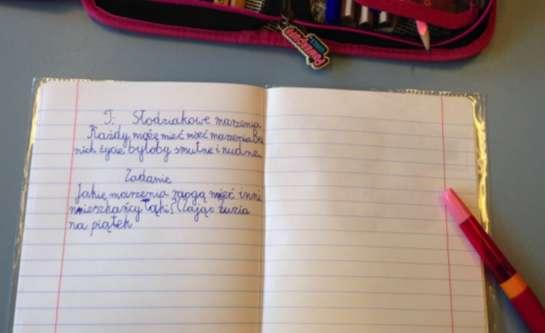 T: Słodziakowe marzenia
Każdy może mieć mieć marzenia Be
nich życie byłoby smutne i nudne.
Zadanie
Jakie marzenia mogą mieć inni
mieszkańcy łąki? Zając zuzia
na piątek